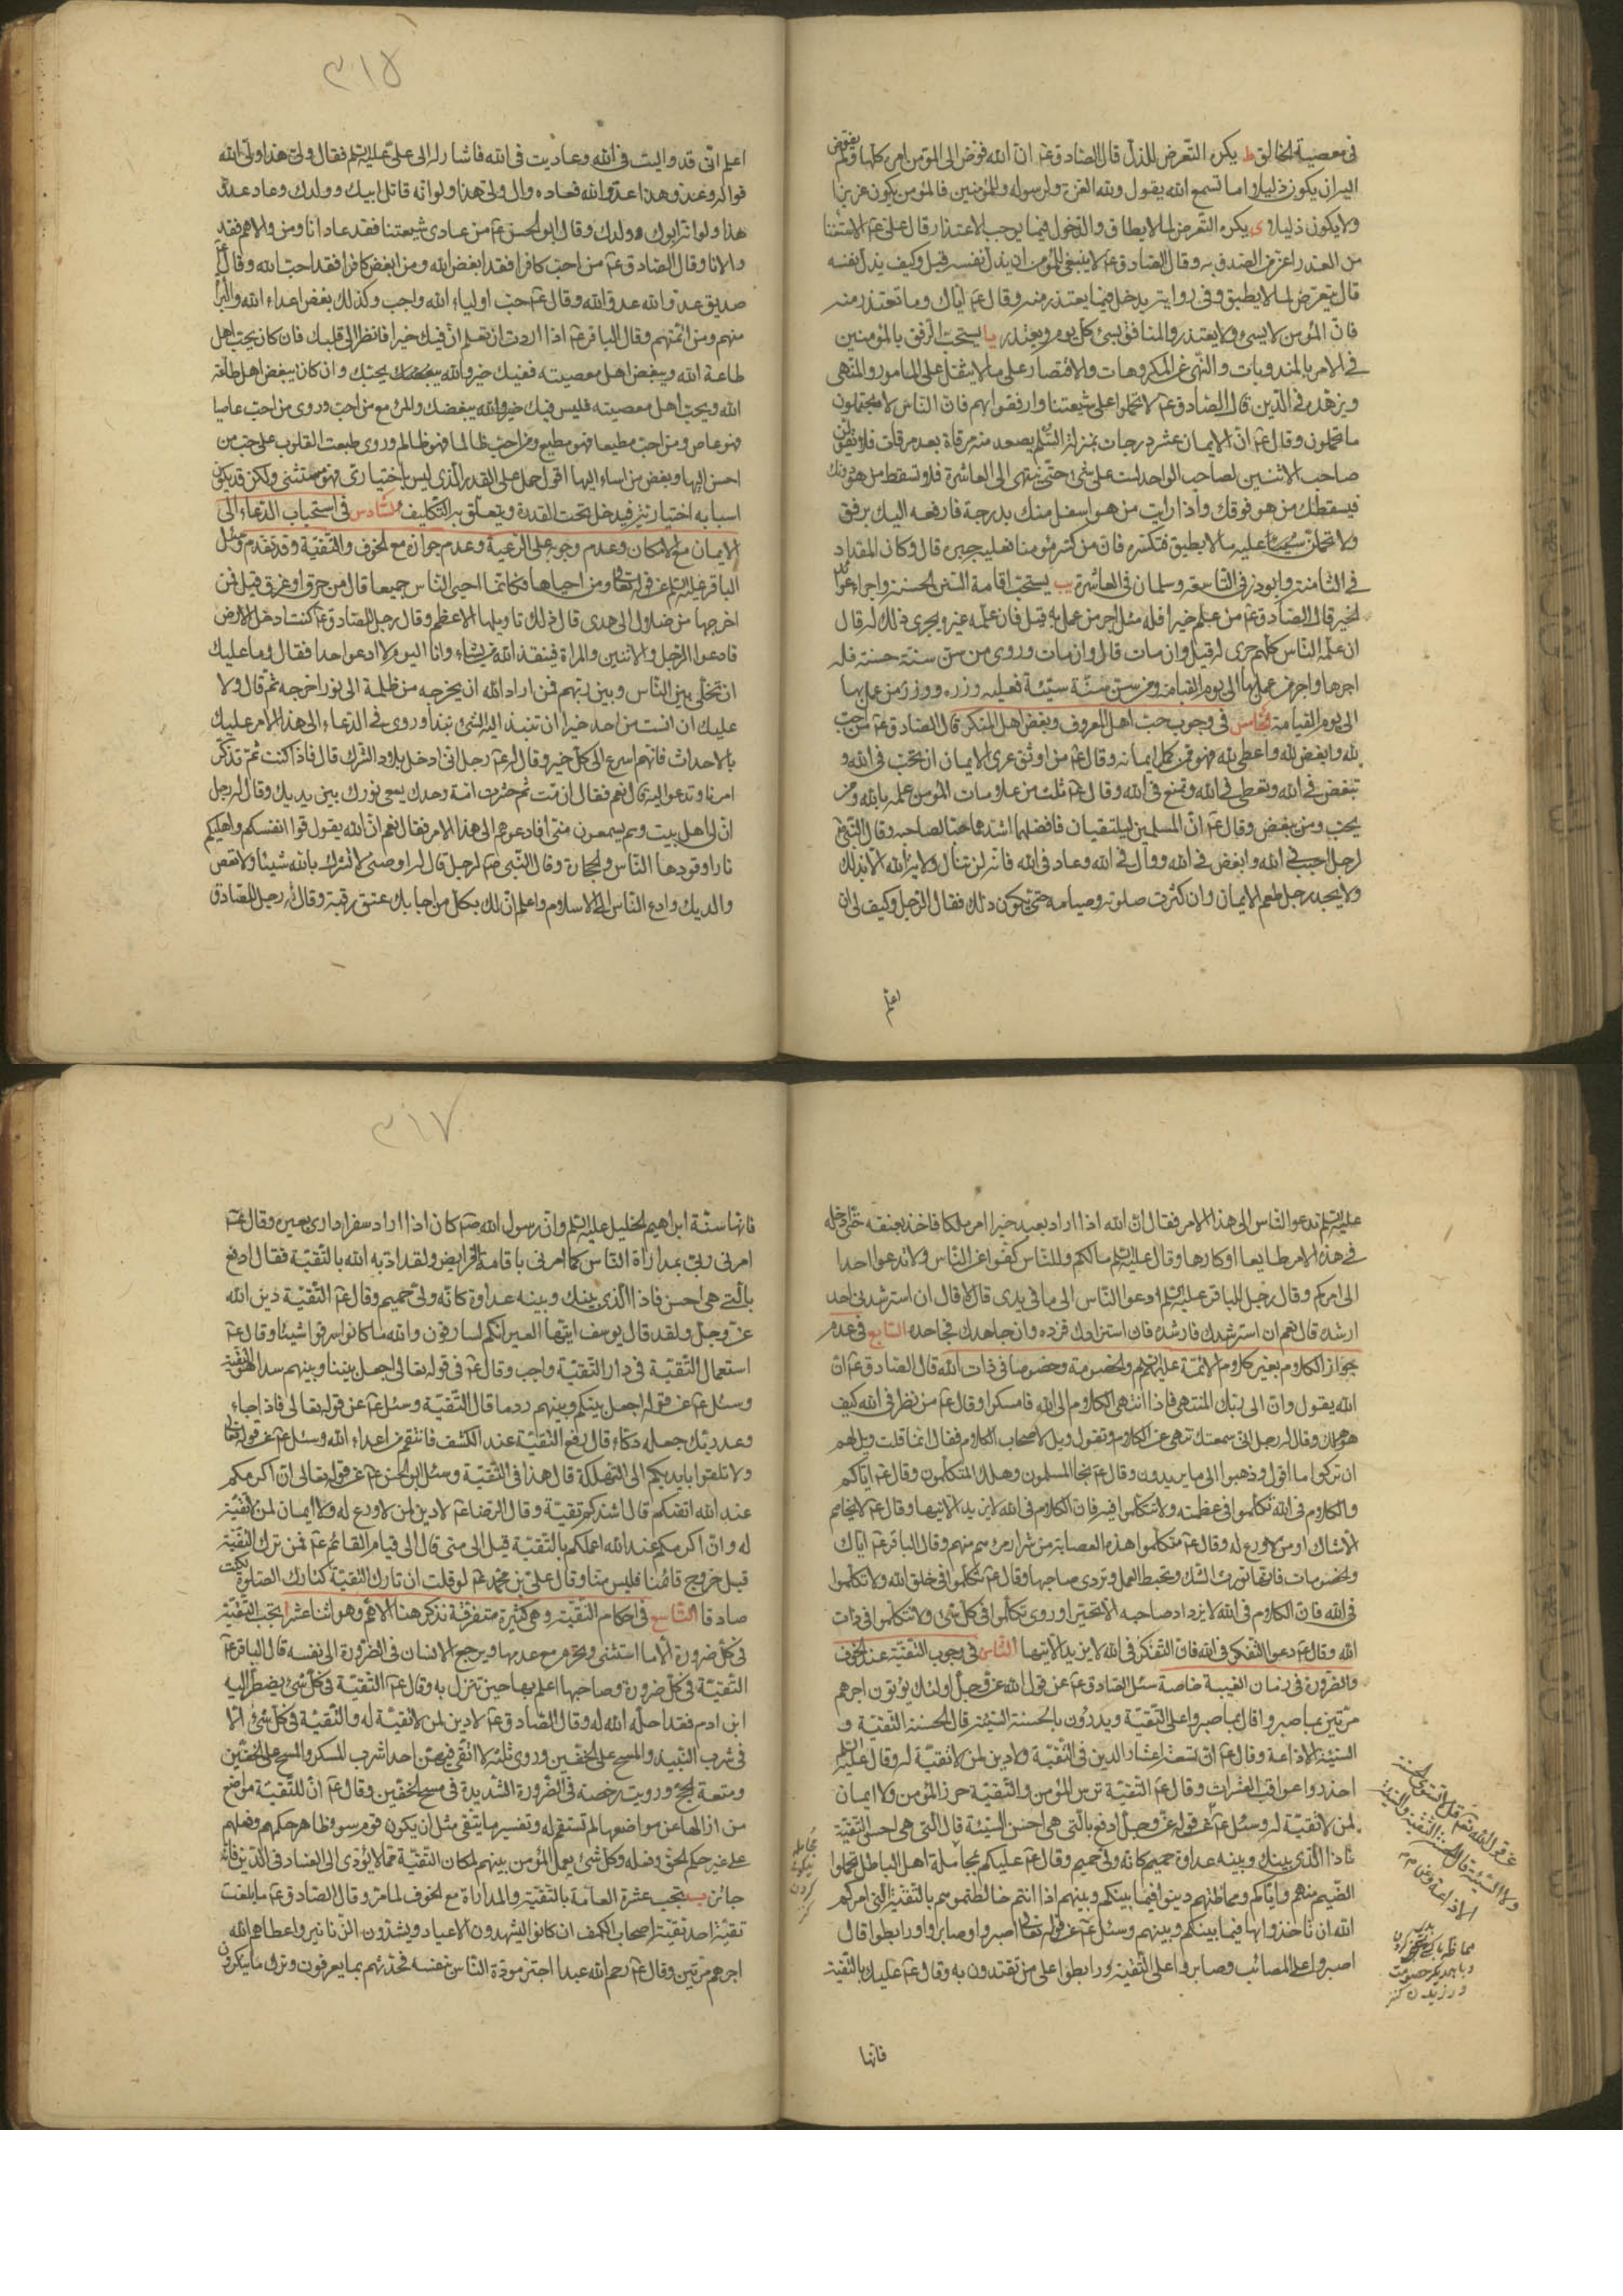 في معصية الخالق ط يكره التعرض للذل قال الصادق عم ان الله فوض الى المؤمن امره كلها ولم يفوض
اليه ان يكون ذليلا واما تسمع الله يقول ولله العزة ولرسوله وللمؤمنين فالمؤمن يكون عزيزا
ولا يكون ذليلا ى يكره التعرض لما لا يطاق والدخول فيما يوجب الاعتذار قال على عم الاستغناء
من العذر اعز من الصدق به وقال الصادق عم لا ينبغي للمؤمن ان يذل نفسه قيل وكيف يذل نفسه
قال يتعرض لما لا يطيق وفي رواية يدخل فيما يعتذر منه وقال عم اياك وما تعتذر منه
فان المؤمن لا يسئ ولا يعتذر والمنافق يسئ كل يوم ويعتذر يا يستحب الرفق بالمؤمنين
في الامر بالمندوبات والنهي عن المكروهات والاقتصار على ما لا يثقل على المامور والمنهي
ويزهده في الدين قال الصادق عم لا تحملوا على شيعتنا وارفقوا بهم فان الناس لا يحتملون
ما تحملون وقال عم ان الايمان عشر درجات بمنزلة السلم يصعد منه مرقاة بعد مرقات فلا يقولن
صاحب الاثنين لصاحب الواحد لست على شئ حتى ينتهى الى العاشرة فلا تسقط من هو دونك
فيسقطك من هو فوقك واذا رايت من هو اسفل منك بدرجة فارفعه اليك برفق
ولا تحملن عليه ما لا يطيق فتكسره فان من كسر مؤمنا فعليه جبره قال وكان المقداد
في الثامنة وابوذر في التاسعة وسلمان في العاشرة يب يستحب اقامة السنن الحسنة واجراء عوائد
الخير قال الصادق عم من علم خيرا فله مثل اجر من عمل به قيل فان علمه غيره يجرى ذلك له قال
ان علمه الناس كلهم جرى له قيل وان مات قال وان مات وروى من سن سنة حسنة فله
اجرها واجر من عمل بها الى يوم القيامة ومن سن سنة سيئة فعليه وزره ووزر من عمل بها
الى يوم القيامة الخامس في وجوب حب اهل المعروف وبغض اهل المنكر قال الصادق عم من احب
لله وابغض لله واعطى لله فهو ممن كمل ايمانه وقال عم من اوثق عرى الايمان ان تحب في الله و
تبغض في الله وتعطى في الله وتمنع في الله وقال عم ثلث من علامات المؤمن علمه بالله ومن
يحب ومن يبغض وقال عم ان المسلمين ليلتقيان فافضلهما اشدهما حبا لصاحبه وقال النبي ص
لرجل احبب في الله وابغض في الله ووال في الله وعاد في الله فانه لن تنال ولاية الله الا بذلك
ولا يجد رجل طعم الايمان وان كثرت صلوته وصيامه حتى يكون ذلك فقال الرجل وكيف لى ان
اعلم
٣١٨
اعلم اني قد واليت في الله وعاديت في الله فاشار له الى على عليه السلم فقال ولى هذا ولى الله
فواله وعدو هذا عدو الله فعاده وال ولى هذا ولو انه قاتل ابيك وولدك وعاد عدو
هذا ولو انه ابوك وولدك وقال ابو الحسن عم من عادى شيعتنا فقد عادانا ومن والاهم فقد
والانا وقال الصادق عم من احب كافرا فقد ابغض الله ومن ابغض كافرا فقد احب الله وقال عم
صديق عدو الله عدو الله وقال عم حب اولياء الله واجب وكذلك بغض اعداء الله والبرائة
منهم ومن ائمتهم وقال الباقر عم اذا اردت ان تعلم ان فيك خيرا فانظر الى قلبك فان كان يحب اهل
طاعة الله ويبغض اهل معصيته ففيك خير والله يحبك وان كان يبغض اهل طاعة
الله ويحب اهل معصيته فليس فيك خير والله يبغضك والمرء مع من احب وروى من احب عاصيا
فهو عاص ومن احب مطيعا فهو مطيع ومن احب ظالما فهو ظالم وروى طبعت القلوب على حب من
احسن اليها وبغض من اساء اليها اقول حمل على القدر الذي ليس باختيارى فهو مستثنى ولكن قد يكون
اسبابه اختيارية فيدخل تحت القدرة ويتعلق به التكليف السادس في استحباب الدعاء الى
الايمان مع الامكان وعدم وجوبه على الرعية وعدم جوازه مع الخوف والتقية وقد تقدم وسئل
الباقر عليه السلم عن قوله تعالى ومن احياها فكانما احيى الناس جميعا قال من حرق او غرق قيل فمن
اخرجها من ضلال الى هدى قال ذلك تاويلها الاعظم وقال رجل للصادق عم كنت ادخل الارض
فادعوا الرجل والاثنين والمراة فينقذ الله من يشاء وانا اليوم لا ادعوا احدا فقال وما عليك
ان تخلى بين الناس وبين ربهم فمن اراد الله ان يخرجه من ظلمة الى نور اخرجه ثم قال ولا
عليك ان انست من احد خيرا ان تنبذ اليه الشئ نبذا وروى في الدعاء الى هذا الامر عليك
بالاحداث فانهم اسرع الى كل خير وقال له عم رجل انى ادخل بلاد الشرك قال فاذا كنت ثم تذكر
امرنا وتدعوا اليه قال نعم فقال ان مت ثم حشرت امة وحدك يسعى نورك بين يديك وقال له رجل
ان لى اهل بيت وهم يسمعون منى افادعوهم الى هذا الامر فقال نعم ان الله يقول قوا انفسكم واهليكم
نارا وقودها الناس والحجارة وقال النبي ص لرجل قال له اوصنى لا تشرك بالله شيئا ولا تعص
والديك وادع الناس الى الاسلام واعلم ان لك بكل من اجابك عتق رقبة وقال رجل للصادق
عليه السلم ندعوا الناس الى هذا الامر فقال ان الله اذا اراد بعبد خيرا امر ملكا فاخذ بعنقه حتى ادخله
في هذا الامر طايعا او كارها وقال عليه السلم مالكم وللناس كفوا عن الناس ولا تدعوا احدا
الى امركم وقال رجل للباقر عليه السلم ادعوا الناس الى ما في يدى قال لا قال ان استرشدنى احد
ارشده قال نعم ان استرشدك فارشده فان استزادك فزده وان جاهدك فجاحده السابع في عدم
جواز الكلام بغير كلام الائمة عليهم السلم والخصومة وخصوصا في ذات الله قال الصادق عم ان
الله يقول وان الى ربك المنتهى فاذا انتهى الكلام الى الله فامسكوا وقال عم من نظر في الله كيف
هو هلك وقال له رجل انى سمعتك تنهى عن الكلام وتقول ويل لاصحاب الكلام فقال انما قلت ويل لهم
ان تركوا ما اقول وذهبوا الى ما يريدون وقال عم نجا المسلمون وهلك المتكلمون وقال عم اياكم
والكلام في الله تكلموا في عظمته ولا تكلموا فيه فان الكلام في الله لا يزيد الا تيها وقال عم لا يخاصم
الا شاك او من لا ورع له وقال عم متكلموا هذه العصابة من شرار من هم منهم وقال الباقر عم اياك
والخصومات فانها تورث الشك وتحبط العمل وتردى صاحبها وقال عم تكلموا في خلق الله ولا تكلموا
في الله فان الكلام في الله لا يزداد صاحبه الا تحيرا وروى تكلموا في كل شئ ولا تكلموا في ذات
الله وقال عم دعوا التفكر في الله فان التفكر في الله لا يزيد الا تيها الثامن في وجوب التقية عند الخوف
والضرورة في زمان الغيبة خاصة سئل الصادق عم عن قول الله عز وجل اولئك يؤتون اجرهم
مرتين بما صبروا قال بما صبروا على التقية ويدرؤن بالحسنة السيئة قال الحسنة التقية و
السيئة الاذاعة وقال عم ان تسعة اعشار الدين في التقية ولا دين لمن لا تقية له وقال عليه السلم
احذروا عواقب العثرات وقال عم التقية ترس المؤمن والتقية حرز المؤمن ولا ايمان
لمن لا تقية له وسئل عم عن قوله عز وجل ادفع بالتى هي احسن السيئة قال التى هي احسن التقية
فاذا الذى بينك وبينه عداوة حميم كانه ولى حميم وقال عم عليكم بمجاملة اهل الباطل تحملوا
الضيم منهم واياكم ومماظتهم دينوا فيما بينكم وبينهم اذا انتم خالطتموهم بالتقية التى امركم
الله ان تاخذوا بها فيما بينكم وبينهم وسئل عم عن قوله تعالى اصبروا وصابروا ورابطوا قال
اصبروا على المصائب وصابروا على التقية ورابطوا على من تقتدون به وقال عم عليك بالتقية
ولا السيئة قال الحسنة التقية والسيئة
الاذاعة
فانها
٣١٧
فانها سنة ابراهيم الخليل عليه السلم وان رسول الله ص كان اذا اراد سفرا دارى بعيره وقال عم
امرنى ربى بمداراة الناس كما امرنى باقامة الفرايض ولقد ادبه الله بالتقية فقال ادفع
بالتى هي احسن فاذا الذى بينك وبينه عداوة كانه ولى حميم وقال عم التقية دين الله
عز وجل ولقد قال يوسف ايتها العير انكم لسارقون والله ما كانوا سرقوا شيئا وقال عم
استعمال التقية في دار التقية واجب وقال عم في قوله تعالى اجعل بيننا وبينهم سدا التقية
وسئل عم عن قوله اجعل بينكم وبينهم ردما قال التقية وسئل عم عن قوله تعالى فاذا جاء
وعد ربك جعله دكاء قال رفع التقية عند الكشف فانتقم من اعداء الله وسئل عم عن قوله تعالى
ولا تلقوا بايديكم الى التهلكة قال هذا في التقية وسئل ابو الحسن عم عن قوله تعالى ان اكرمكم
عند الله اتقيكم قال اشدكم تقية وقال الرضا عم لا دين لمن لا ورع له ولا ايمان لمن لا تقية
له وان اكرمكم عند الله اعملكم بالتقية قيل الى متى قال الى قيام القائم عم فمن ترك التقية
قبل خروج قائمنا فليس منا وقال على بن محمد عم لو قلت ان تارك التقية كتارك الصلوة لكنت
صادقا التاسع في احكام التقية وهي كثيرة متفرقة نذكر هنا الاهم وهو اثنا عشر ا تجب التقية
في كل ضرورة الا ما استثنى ويحرم مع عدمها ويرجع الانسان في الضرورة الى نفسه قال الباقر عم
التقية في كل ضرورة وصاحبها اعلم بها حين تنزل به وقال عم التقية في كل شئ يضطر اليه
ابن ادم فقد احله الله له وقال الصادق عم لا دين لمن لا تقية له والتقية في كل شئ الا
في شرب النبيذ والمسح على الخفين وروى ثلثة لا اتقى فيهن احدا شرب المسكر والمسح على الخفين
ومتعة الحج ورويت رخصة في الضرورة الشديدة في مسح الخفين وقال عم ان للتقية مواضع
من ازالها عن مواضعها لم تستقم له وتفسير ما يتقى مثل ان يكون قوم سوء ظاهر حكمهم وفعلهم
على غير حكم الحق وفعله وكل شئ يعمل المؤمن بينهم لمكان التقية مما لا يؤدى الى الفساد في الدين فانه
جائز ب يجب عشرة العامة بالتقية والمداراة مع الخوف لما مر وقال الصادق عم ما بلغت
تقية احد تقية اصحاب الكهف ان كانوا ليشهدون الاعياد ويشدون الزنانير واعطاهم الله
اجرهم مرتين وقال عم رحم الله عبدا اجتر مودة الناس الى نفسه فحدثهم بما يعرفون وترك ما ينكرون